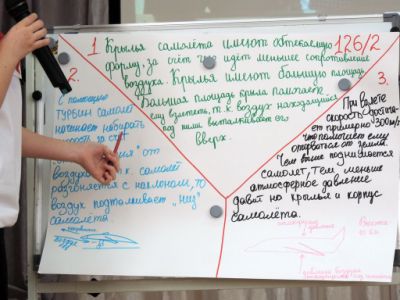 126/2
1. Крылья самолёта имеют обтекаемую
форму, за счёт чего идёт меньше сопротивление
воздуха. Крылья имеют большую площадь
Большая площадь крыла помогает
ему взлетать, т.к. воздух находящийся
под ними выталкивает его
вверх.
2.
С помощью
турбин самолёт
начинает набирать
скорость за счёт
от
воздуха т.к. самолёт
разгоняется с наклоном, то
воздух подталкивает "низ"
самолёта.
воздух
3.
При взлёте
скорость достига-
ет примерно 300км/ч
что помогает ему
оторваться от земли.
Чем выше поднимается
самолёт, тем меньше
атмосферное давление
давит на крылья и корпус
самолёта.
давление
давление воздуха